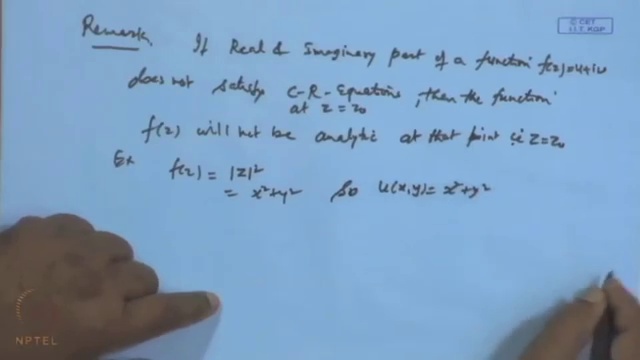 © CET
I.I.T. KGP
Remark If Real & Imaginary part of a function f(z)=u+iv
does not satisfy C-R-Equations, then the function
at z=z₀
f(z) will not be analytic at that point i.e. z=z₀
Ex f(z) = |z|²
= x²+y² So u(x,y)= x²+y²
NPTEL